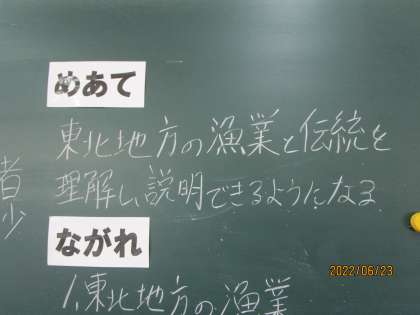 めあて
東北地方の漁業と伝統を
理解し、説明できるようになる
ながれ
1、東北地方の漁業
2022/06/23